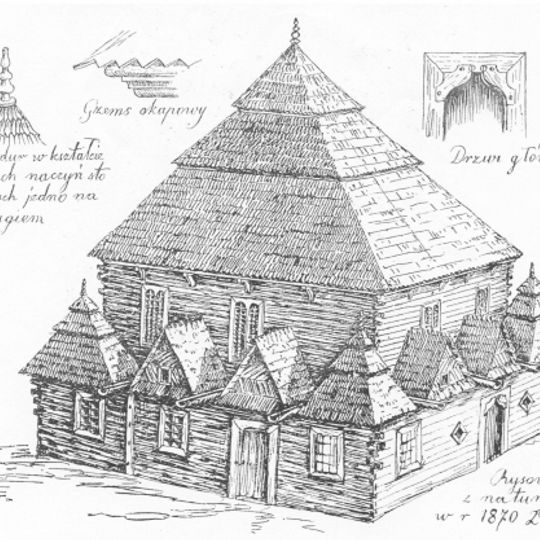 Gzems okapowy
w kształcie
naczyń sto
jedno na
Drzwi głó
Rysow
z natur
w r 1870